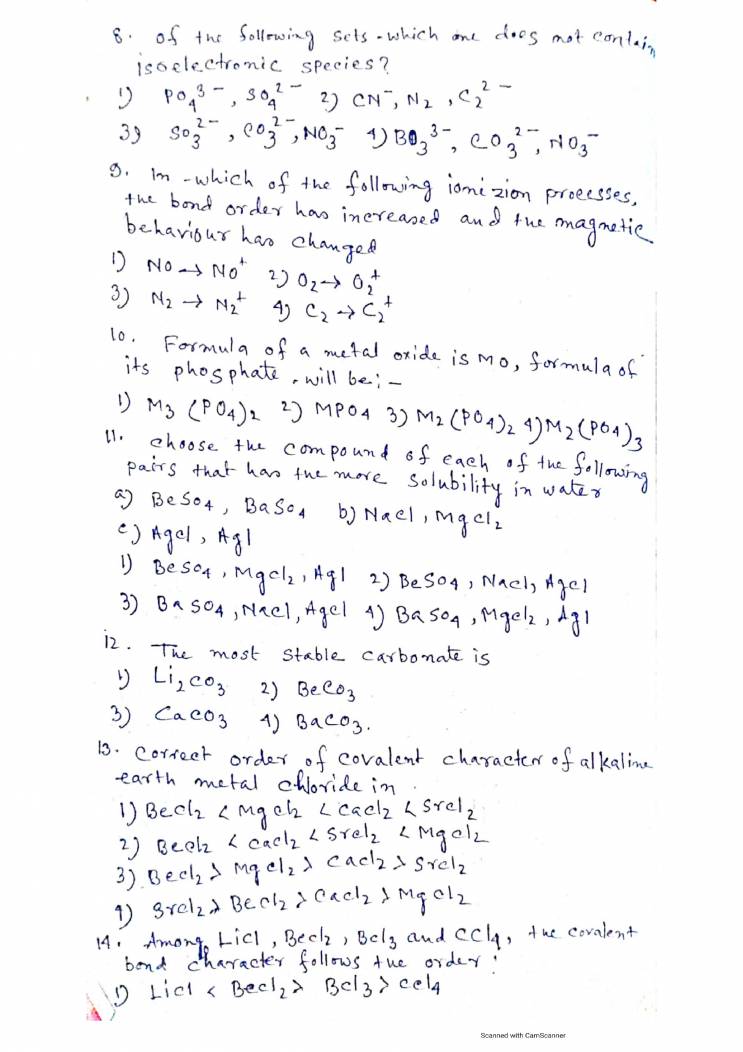 8. Of the following sets - which one does not contain
isoelectronic species?
1) PO₄³⁻, SO₄²⁻ 2) CN⁻, N₂, C₂²⁻
3) SO₃²⁻, CO₃²⁻, NO₃⁻ 4) BO₃³⁻, CO₃²⁻, NO₃⁻
9. In - which of the following ionizion processes,
the bond order has increased and the magnetic
behaviour has changed
1) NO → NO⁺ 2) O₂ → O₂⁺
3) N₂ → N₂⁺ 4) C₂ → C₂⁺
10. Formula of a metal oxide is MO, formula of
its phosphate, will be; -
1) M₃(PO₄)₂ 2) MPO₄ 3) M₂(PO₄)₂ 4) M₂(PO₄)₃
11. choose the compound of each of the following
pairs that has the more solubility in water
a) BeSO₄, BaSO₄ b) NaCl, MgCl₂
c) AgCl, AgI
1) BeSO₄, MgCl₂, AgI 2) BeSO₄, NaCl, AgCl
3) BaSO₄, NaCl, AgCl 4) BaSO₄, MgCl₂, AgI
12. The most stable carbonate is
1) Li₂CO₃ 2) BeCO₃
3) CaCO₃ 4) BaCO₃.
13. Correct order of covalent character of alkaline
earth metal chloride in
1) BeCl₂ < MgCl₂ < CaCl₂ < SrCl₂
2) BeCl₂ < CaCl₂ < SrCl₂ < MgCl₂
3) BeCl₂ > MgCl₂ > CaCl₂ > SrCl₂
4) SrCl₂ > BeCl₂ > CaCl₂ > MgCl₂
14. Among, LiCl, BeCl₂, BCl₃ and CCl₄, the covalent
bond character follows the order:
1) LiCl < BeCl₂ > BCl₃ > CCl₄
Scanned with CamScanner